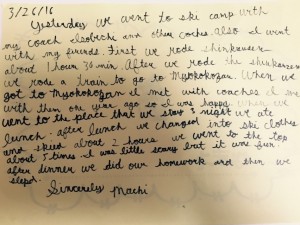 3/26/16
Yesterday we went to ski camp with
my coach Isobchi and other coches. Also I went
with my friends. First we rode shinkansen
about 1 hour 30 min. After we rode the shinkansen
we rode a train to go to Myokokozan. When we
got to Myokokozan I met with coaches I
with them one year ago so I was happy when we
went to the place that we stay 3 night we ate
lunch. after lunch we changed into ski clothes
and skied about 2 hours we went to the top
about 5 times. I was little scary but it was fun.
after dinner we did our homework and then we
slept.
Sincerely Machi